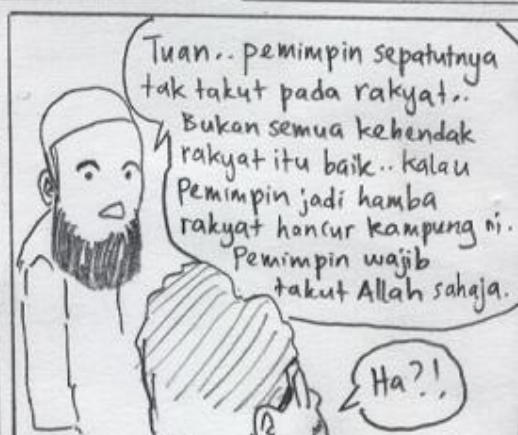 Tuan.. pemimpin sepatutnya
tak takut pada rakyat..
Bukan semua kehendak
rakyat itu baik.. kalau
Pemimpin jadi hamba
rakyat hancur kampung ni.
Pemimpin wajib
takut Allah sahaja.
Ha?!